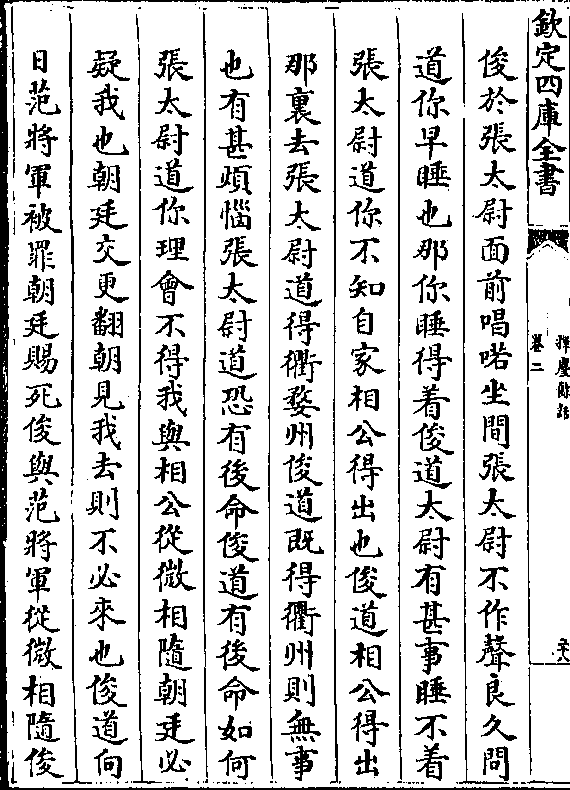 欽定四庫全書
揮麈餘話
卷二
俊於張太尉面前唱喏坐間張太尉不作聲良久問
道你早睡也那你睡得着俊道太尉有甚事睡不着
張太尉道你不知自家相公得出也俊道相公得出
那裏去張太尉道得衢婺州俊道既得衢州則無事
也有甚煩惱張太尉道恐有後命俊道有後命如何
張太尉道你理會不得我與相公從微相隨朝廷必
疑我也朝廷交更翻朝見我去則不必來也俊道向
日范將軍被罪朝廷賜死俊與范將軍從微相隨俊